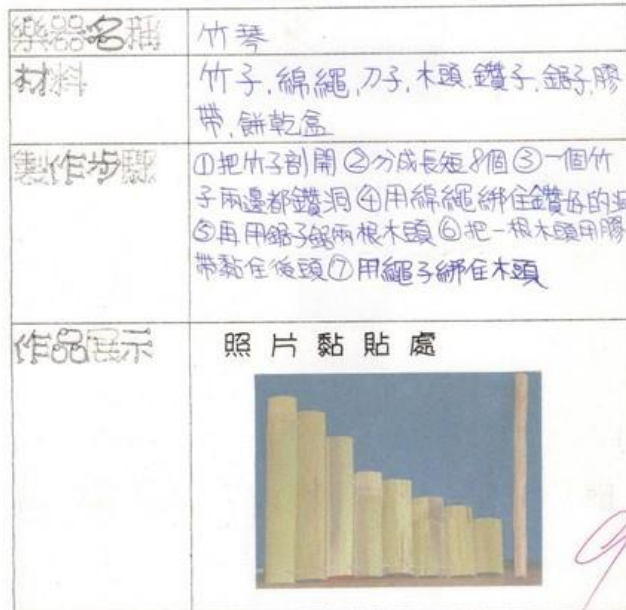 樂器名稱
竹琴
材料
竹子,綿繩,刀子,木頭.鑽子,鋸子,膠
帶,餅乾盒
製作步驟
①把竹子剖開②分成長短8個③一個竹
子兩邊都鑽洞④用綿繩綁住鑽好的洞
⑤再用鋸子鋸兩根木頭⑥把一根木頭用膠
帶黏在後頭⑦用繩子綁住木頭
作品展示
照片黏貼處